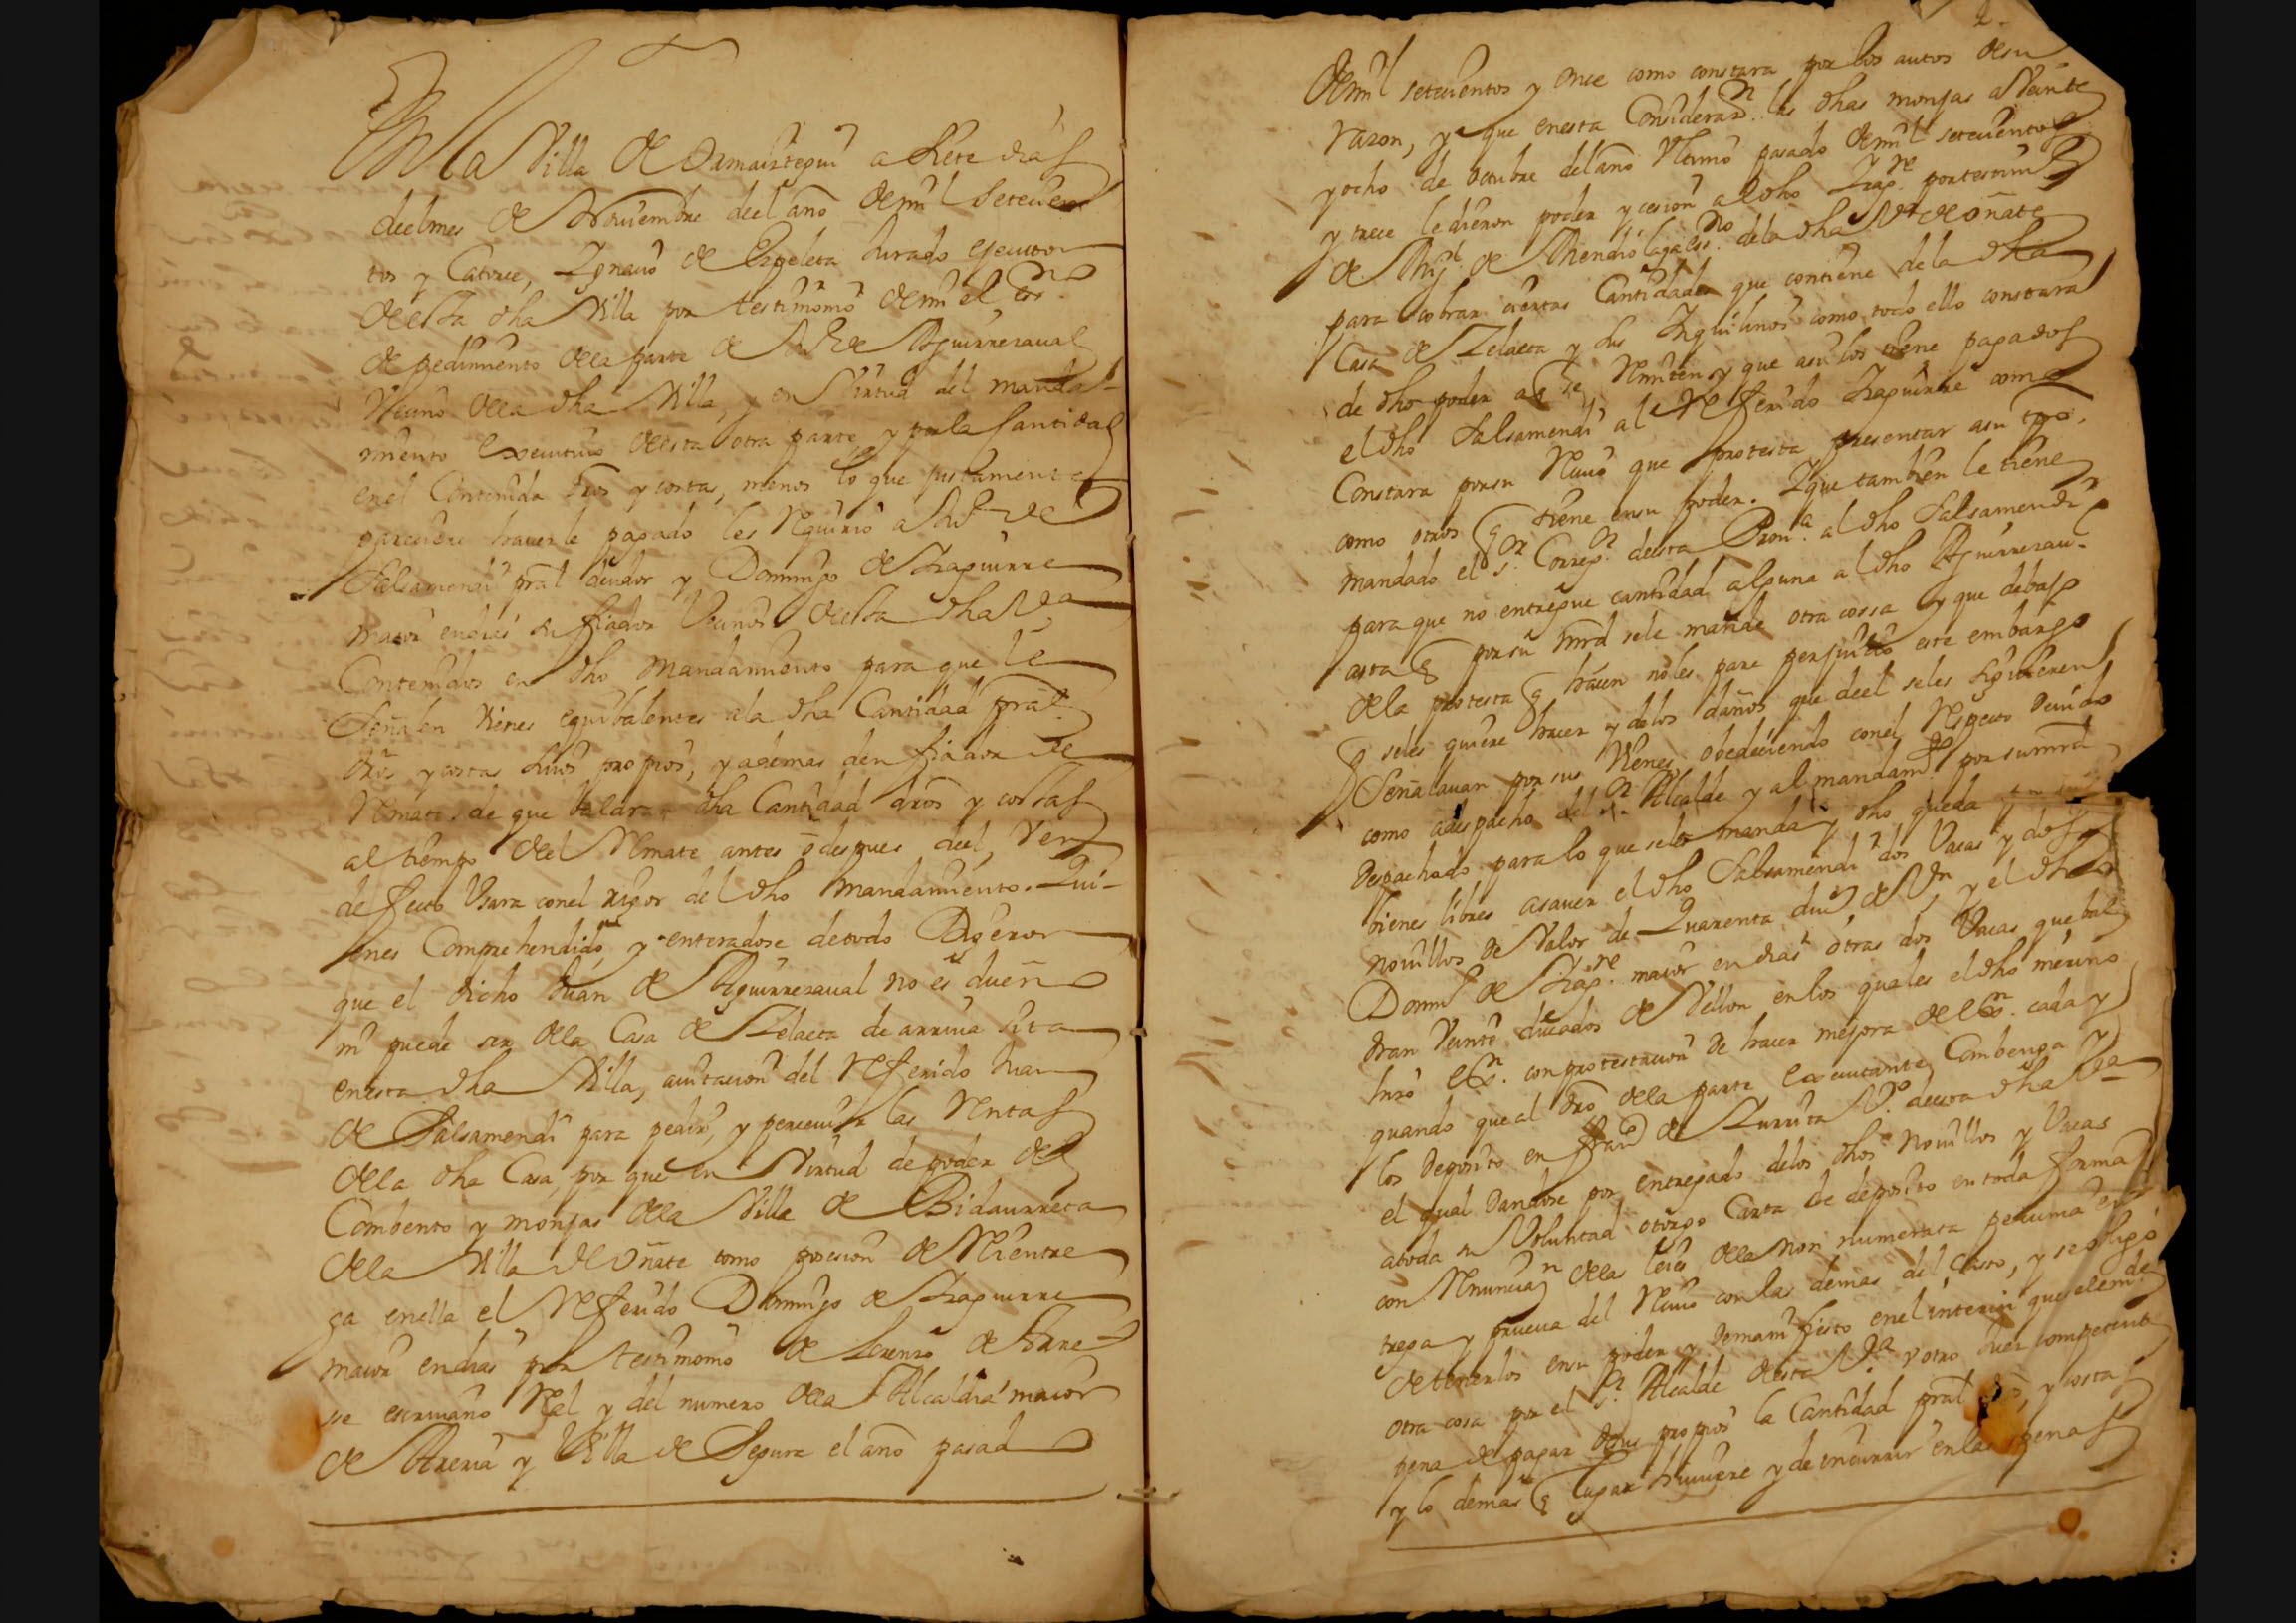 En la Villa de Ormaiztegui a siete dias
deel mes de Noviembre deel año de mil setecien
tos y Catorce, Ignacio de Ezpeleta Jurado ejecutor
de esta dha Villa por testimonio de mi el ess.no
de pedimiento de la parte de Ju.o de Aguirrezaual
Vecino de la dha Villa, y en Virtud del manda-
miento executiuo de esta otra parte, y por la Cantidad
en el Contenida dros y costas, menos lo que justamente
pareciere hauerle pagado les Requirio a Ju.o de
Salsamendi pral deudor y Domingo de Yraguirre
maior en dias su fiador Vecinos de esta dha V.a
Contenidos en dho mandamiento para que le
Señalen Vienes equibalentes a la dha Cantidad pral
dros y costas suios propios, y ademas den fiador de
Remate de que Valdran dha Cantidad dros y costas
al tiempo del Remate antes o despues deel, y en
defecto Usara con el rigor del dho mandamiento. Qui-
enes Comprehendido, y enteradose de todo Digeron
que el dicho Juan de Aguirrezaual no es dueño
ni puede ser de la Casa de Zelaeta de arriua sita
en esta dha Villa, auitacion del Referido Juan
de Salsamendi para pedir, y perceuir las Rentas
de la dha Casa, por que en Virtud de poder del
Combento y monjas de la Villa de Bidaurreta
de la Villa de Oñate tomo posesion de Rientre
ga en ella el Referido Domingo de Yraguirre
maior en dias por testimonio de Lorenzo de
se escriuano Real y del numero de la Alcaldia maior
de Areria y Villa de Segura el año pasado
2
de mil setecientos y once como constara por los autos de su
razon, y que en esta Consideraz.n las dhas monjas a Veinte
y ocho de octubre del año Ultimo pasado de mil setecientos
y trece le dieron poder y cesion al dho Yrag.re por testim.o
de Mig.l de Mendiolaga ess.no de la dha V.a de Oñate
para cobrar ciertas Cantidades que contiene de la dha
Casa de Zelaeta y sus Ynquilinos como todo ello constara
de dho poder a q se Remiten y que asi los tiene pagados
el dho Salsamendi al Referido Yraguirre como
Constara por su Reciuo que protesta presentar a su tpo.
como otros q tiene en su poder. Y que tambien le tiene
mandado el s.or Correg.or de esta Prou.a al dho Salsamendi
para que no entregue cantidad alguna al dho Aguirrezau-
asta q por su mrd se le mande otra cossa y que debajo
de la protesta q hacen no les pare perjuicio este embargo
q se les quiere hacer y de los daños que deel se les siguieren
Señalauan por sus Vienes obedeciendo con el Respecto deuido
como a despacho del s.r Alcalde y al mandam.to por su mrd
Despachado para lo que se les manda y dho queda
bienes libres a sauer el dho Salsamendi dos Vacas y dos
nouillos de Valor de Quarenta duc.s de V.n y el dho
Dom.o de Yrag.re maior en dias otras dos Vacas que bal
dran Veinte ducados de Vellon en los quales el dho merino
hizo ex.n con protestacion de hacer mejora de ex.n cada y
quando que al dro de la parte executante Combenga Y
los Deposito en Fran.co de Yurrita V.o de esta dha V.a
el qual Dandose por entregado de los dhos Nouillos y Vacas
a toda su Voluntad otorgo Carta de deposito en toda forma
con Renuncia.n de las leies de la non numerata pecunia en
trega y prueua del Reciuo con las demas del Casso, y se obligo
de tenerlos en su poder y demanifiesto en el interin que se le mde
otra cosa por el s.r Alcalde de esta V.a y otro Juez competente
pena de pagar de sus propios la Cantidad pral , y costas
y lo demas q lugar huuiere y de incurrir en las penas